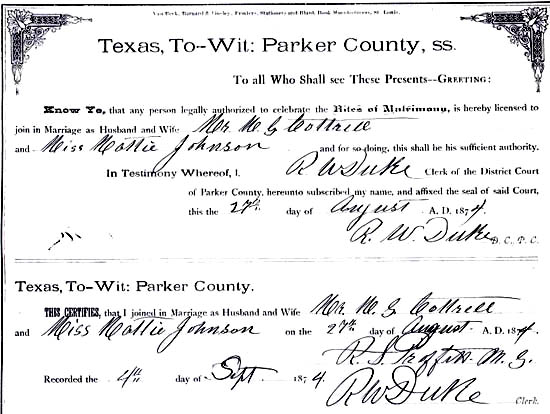 Van Beek, Barnard & Tinsley, Printers, Stationers and Blank Book Manufacturers, St. Louis.
Texas, To--Wit: Parker County, ss.
To all Who Shall see These Presents--GREETING:
Know Ye, that any person legally authorized to celebrate the Rites of Matrimony, is hereby licensed to
join in Marriage as Husband and Wife Mr. M G Cottrell
and Miss Mottie Johnson and for so doing, this shall be his sufficient authority.
In Testimony Whereof, I, R W Duke Clerk of the District Court
of Parker County, hereunto subscribed my name, and affixed the seal of said Court,
this the 27th day of August A. D. 1874.
R. W. Duke D. C., P. C.
Texas, To-Wit: Parker County.
THIS CERTIFIES, that I joined in Marriage as Husband and Wife Mr. M G Cottrell
and Miss Mottie Johnson on the 27th day of August A. D. 1874
R. S. M. G.
Recorded the 4th day of Sept 1874
R W Duke Clerk.